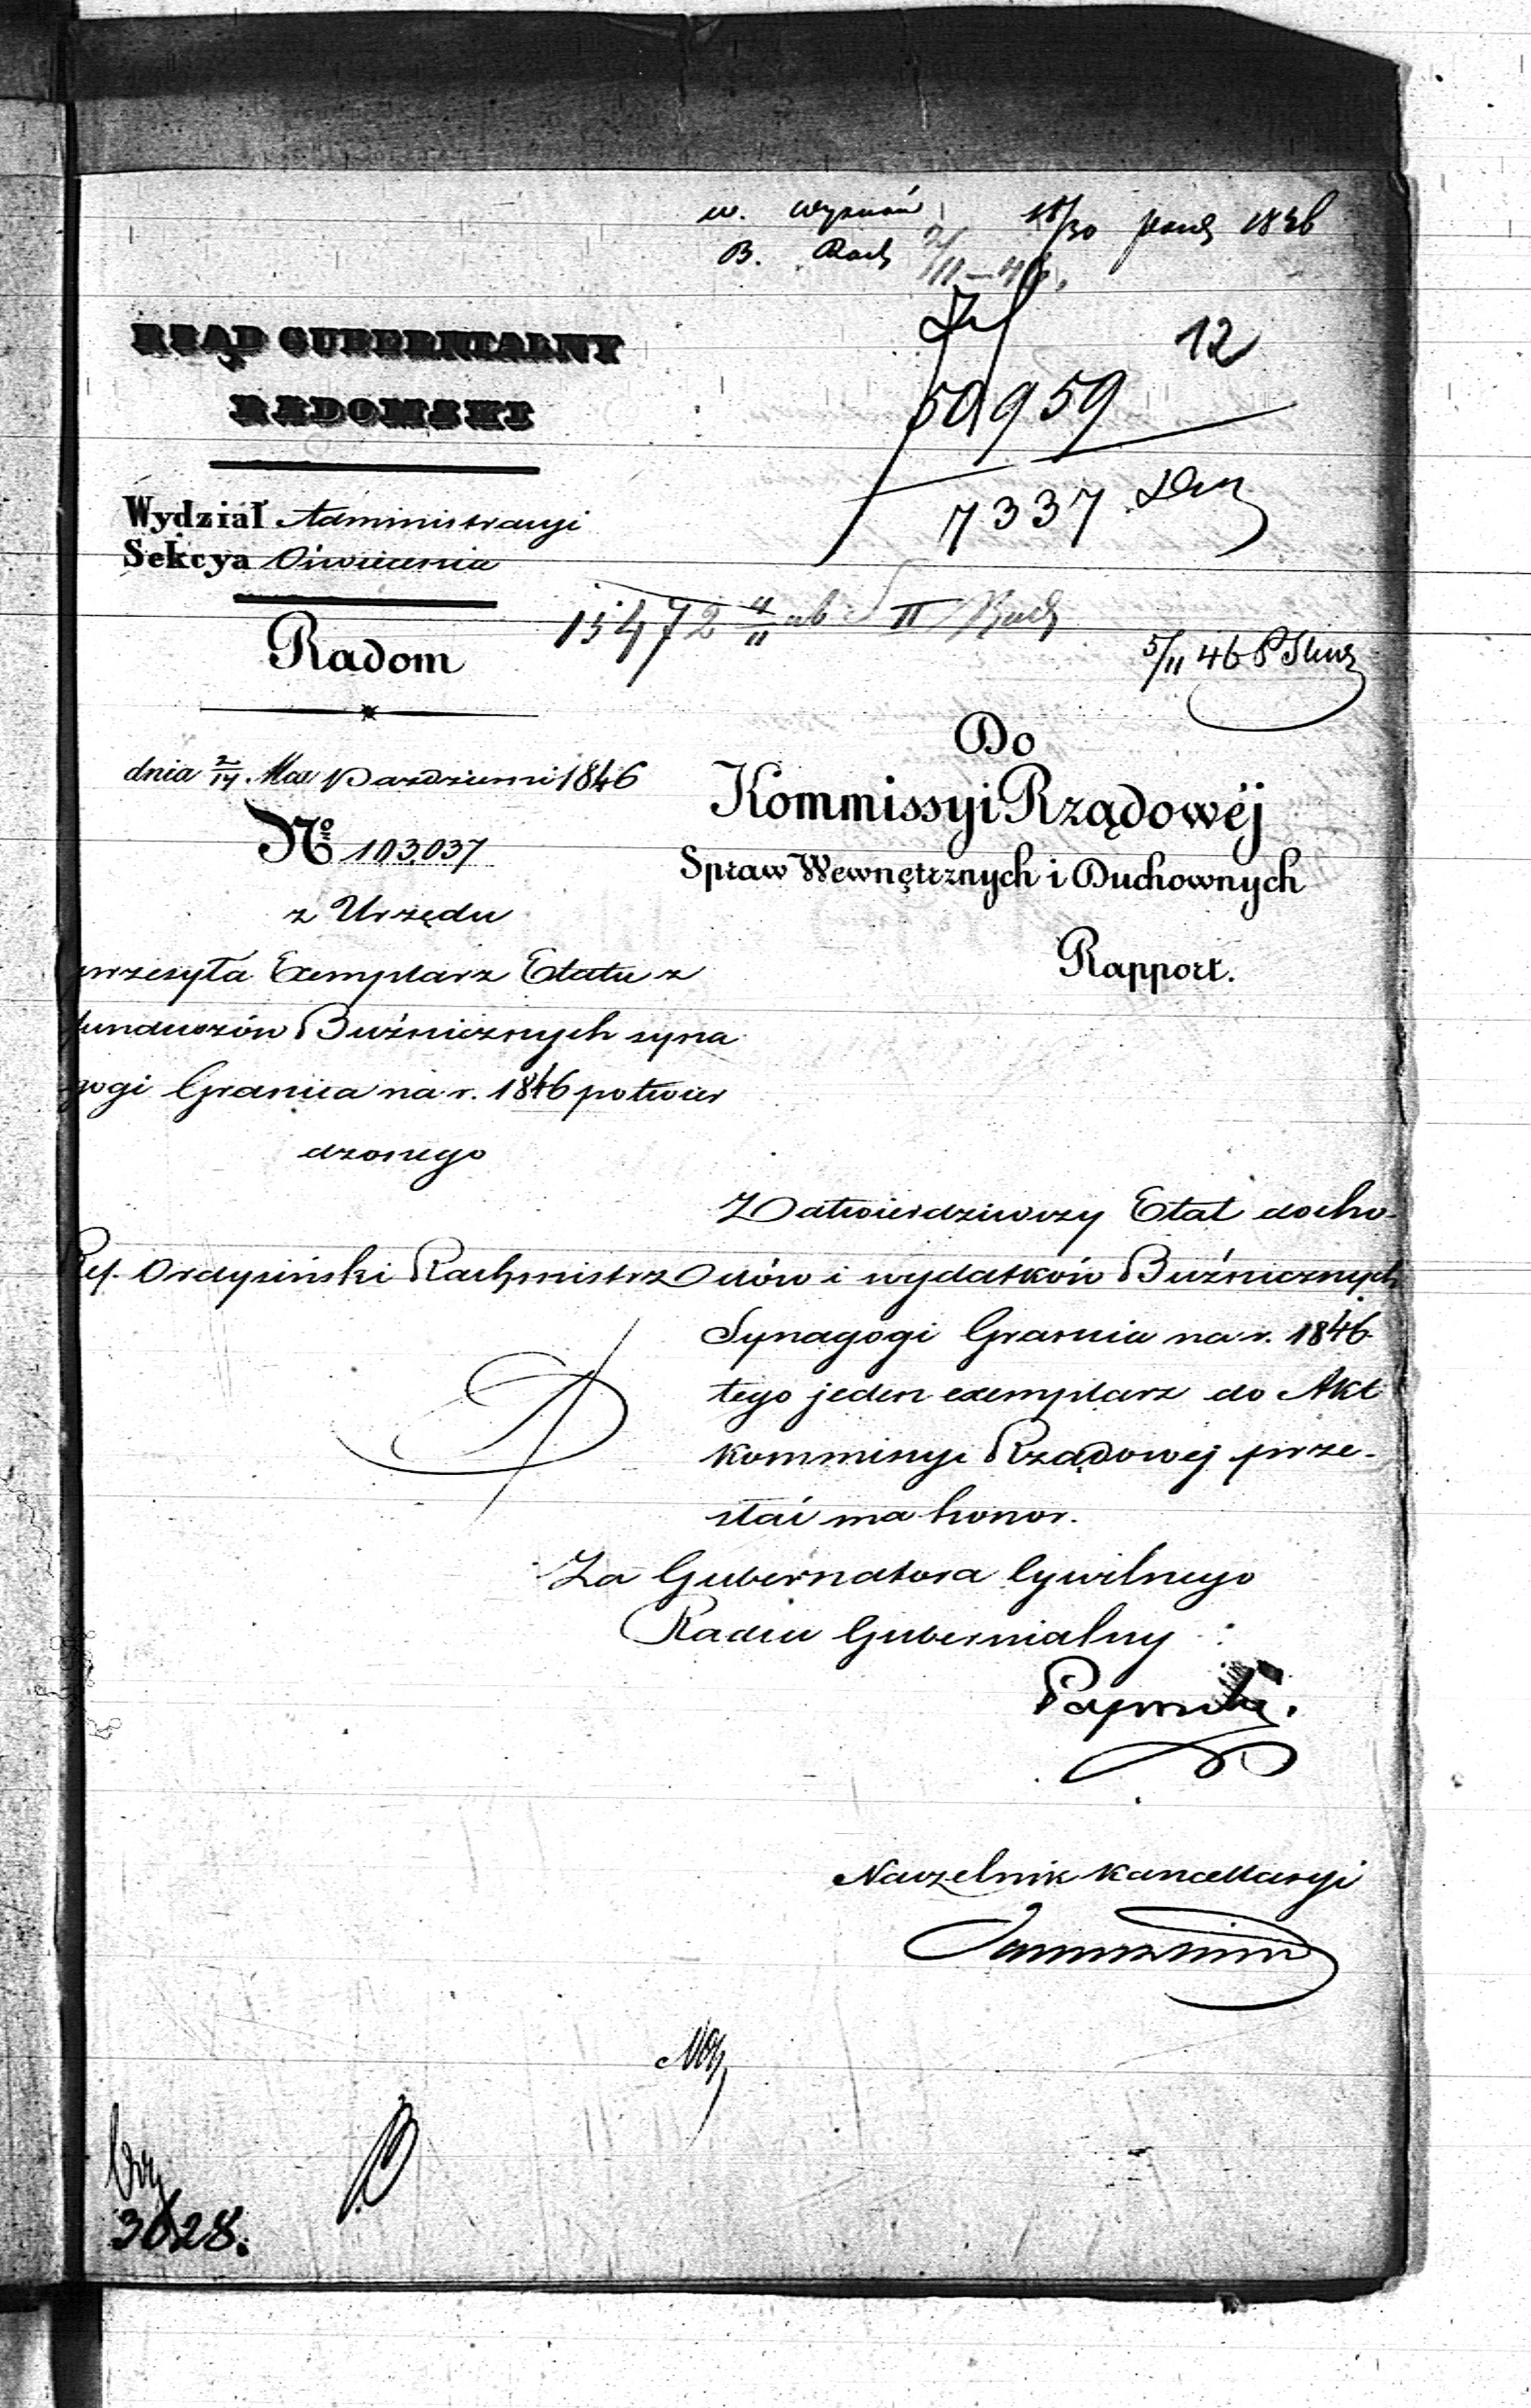 w. wyznań 18/30 Paźd 1846
B. Rach
12
50959
7337
RZĄD GUBERNIALNY
RADOMSKI
Wydział Administracyi
Sekcya Oświecenia
15472 4/11 46 S II Rach
5/11 46
Radom
dnia 2/14 Mca Październi 1846
No 103,037
z Urzędu
przesyła Exemplarz Etatu z
funduszów Bużnicznych syna
gogi Granica na r. 1846 potwier
dzonego
Ref. Ordysiński Rachmistrz
Do
Kommissyi Rządowéj
Spraw Wewnętrznych i Duchownych
Rapport.
Zatwierdziwszy Etat docho-
dów i wydatków Bużnicznych
Synagogi Granica na r. 1846
tego jeden exemplarz do Akt
Kommissyi Rządowej prze-
słać ma honor.
Za Gubernatora Cywilnego
Radca Gubernialny
Naczelnik Kancellaryi
3628.